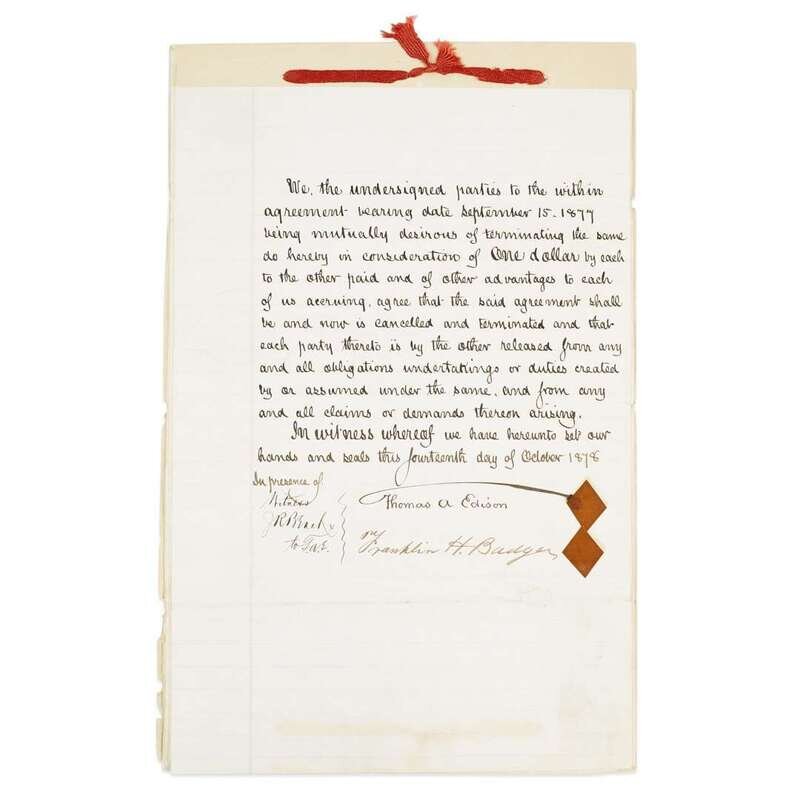 We, the undersigned parties to the within
agreement bearing date September 15. 1877
being mutually desirous of terminating the same
do hereby in consideration of One dollar by each
to the other paid and of other advantages to each
of us accruing, agree that the said agreement shall
be and now is cancelled and terminated and that
each party thereto is by the other released from any
and all obligations undertakings or duties created
by or assumed under the same, and from any
and all claims or demands thereon arising.
In witness whereof we have hereunto set our
hands and seals this fourteenth day of October 1878
In presence of
Witness
to T.A.E.
Thomas A Edison
Franklin H. Badger